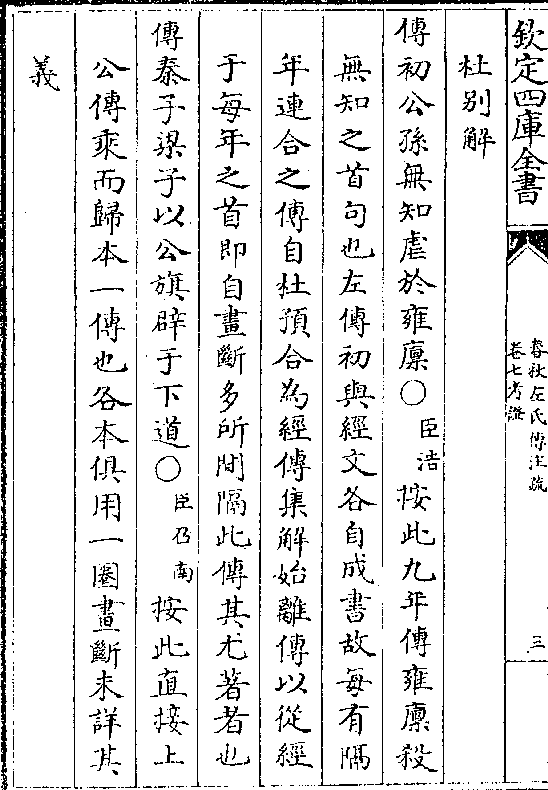 欽定四庫全書
春秋左氏傳注疏
卷七考證
三
杜别解
傳初公孫無知虐於雍廩○臣浩按此九年傳雍廩殺
無知之首句也左傳初與經文各自成書故每有隔
年連合之傳自杜預合為經傳集解始離傳以從經
于每年之首即自畫斷多所間隔此傳其尤著者也
傳秦子梁子以公旗辟于下道○臣乃南按此直接上
公傳乘而歸本一傳也各本俱用一圈畫斷未詳其
義